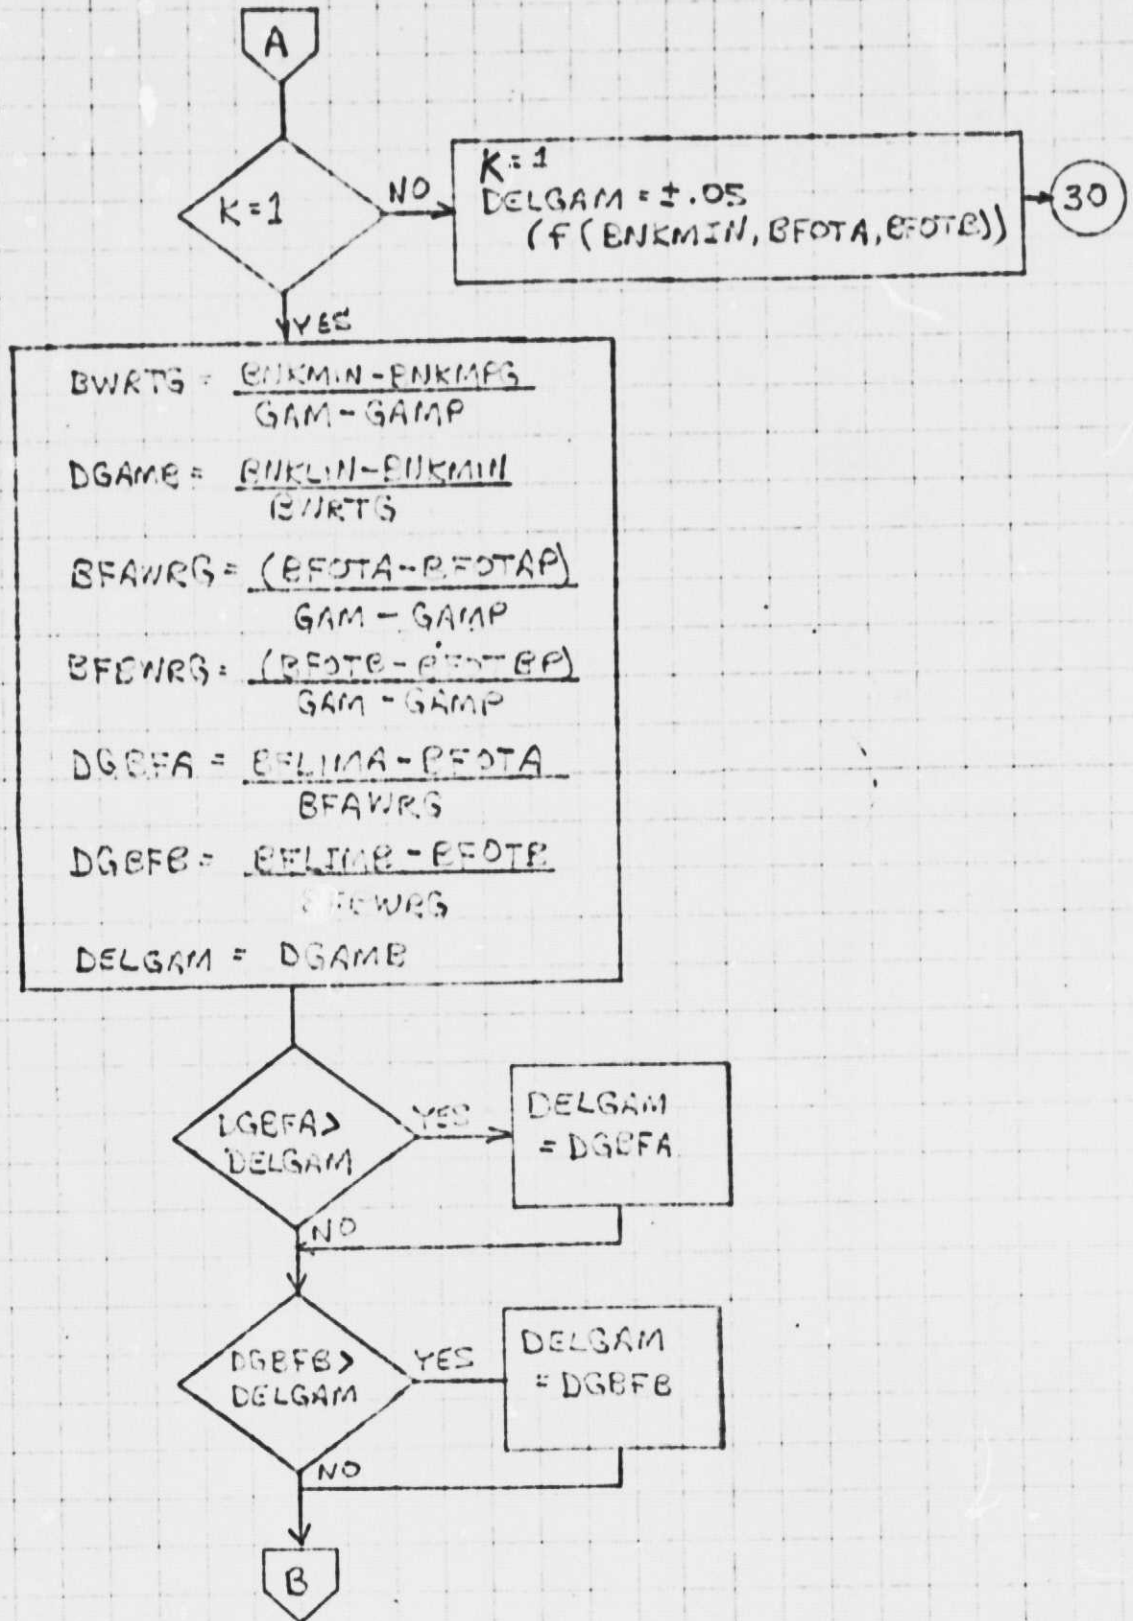 A
K=1
NO
K=1
DELGAM = ±.05
(f(BNKMIN, BFOTA, BFOTB))
30
YES
BWRTG = BNKMIN-BNKMPG
GAM-GAMP
DGAMB = BNKLIN-BNKMIN
BWRTG
BFAWRG = (BFOTA-BFOTAP)
GAM - GAMP
BFBWRG = (BFOTB-BFOTBP)
GAM - GAMP
DGBFA = BFLIMA-BFOTA
BFAWRG
DGBFB = BFLIMB-BFOTB
BFBWRG
DELGAM = DGAMB
DGBFA>
DELGAM
YES
DELGAM
= DGBFA
NO
DGBFB>
DELGAM
YES
DELGAM
= DGBFB
NO
B